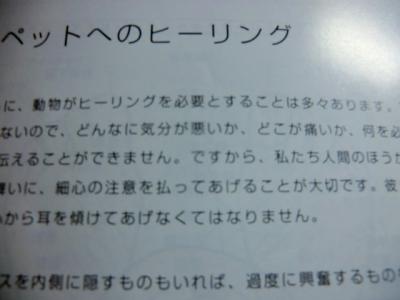 ペットへのヒーリング
に、動物がヒーリングを必要とすることは多々あります。
ないので、どんなに気分が悪いか、どこが痛いか、何を必
伝えることができません。ですから、私たち人間のほうか
舞いに、細心の注意を払ってあげることが大切です。彼
から耳を傾けてあげなくてはなりません。
スを内側に隠すものもいれば、過度に興奮するものも